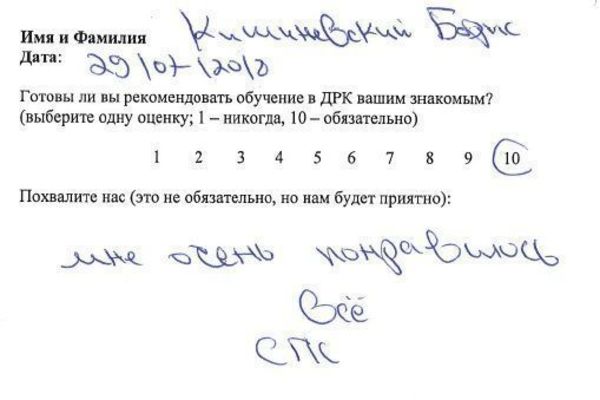 Имя и Фамилия Кишиневский Борис
Дата: 29/07/2018
Готовы ли вы рекомендовать обучение в ДРК вашим знакомым?
(выберите одну оценку; 1 – никогда, 10 – обязательно)
1 2 3 4 5 6 7 8 9 10
Похвалите нас (это не обязательно, но нам будет приятно):
мне очень понравилось
Всё
СПС